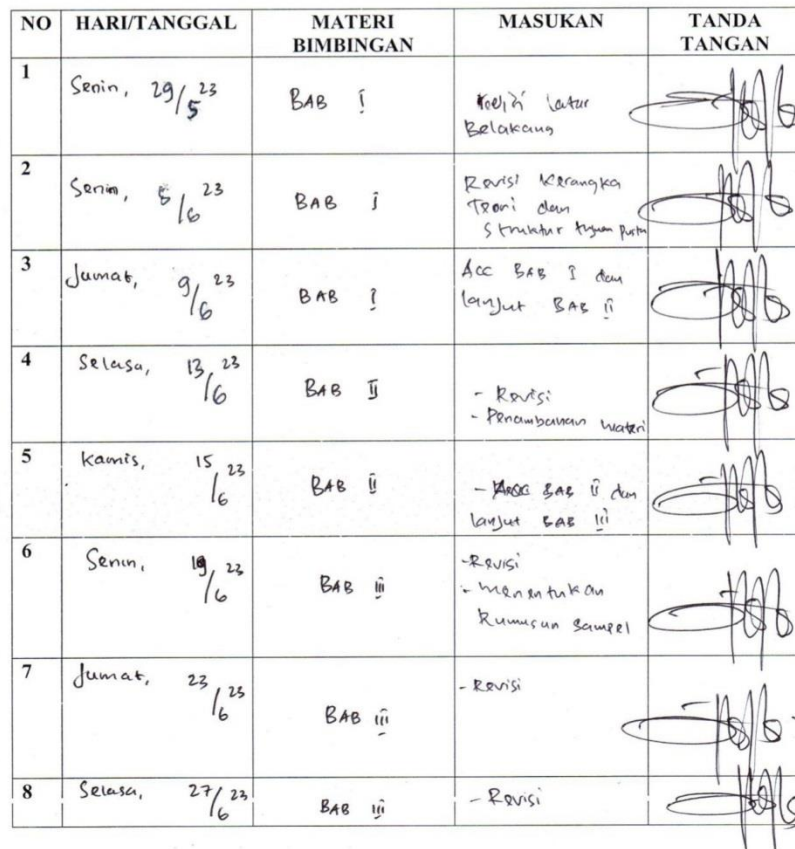 NO HARI/TANGGAL MATERI BIMBINGAN MASUKAN TANDA TANGAN
1 Senin, 29/5 23 BAB I latar
Belakang
2 Senin, 5/6 23 BAB I Revisi Kerangka
Teori dan
Struktur
3 Jumat, 9/6 23 BAB I Acc BAB I dan
lanjut BAB II
4 Selasa, 13/6 23 BAB II - Revisi
- Penambahan materi
5 Kamis, 15/6 23 BAB II - Acc BAB II dan
lanjut BAB III
6 Senin, 19/6 23 BAB III - Revisi
- menentukan
Rumusan Sampel
7 Jumat, 23/6 23 BAB III - Revisi
8 Selasa, 27/6 23 BAB III - Revisi